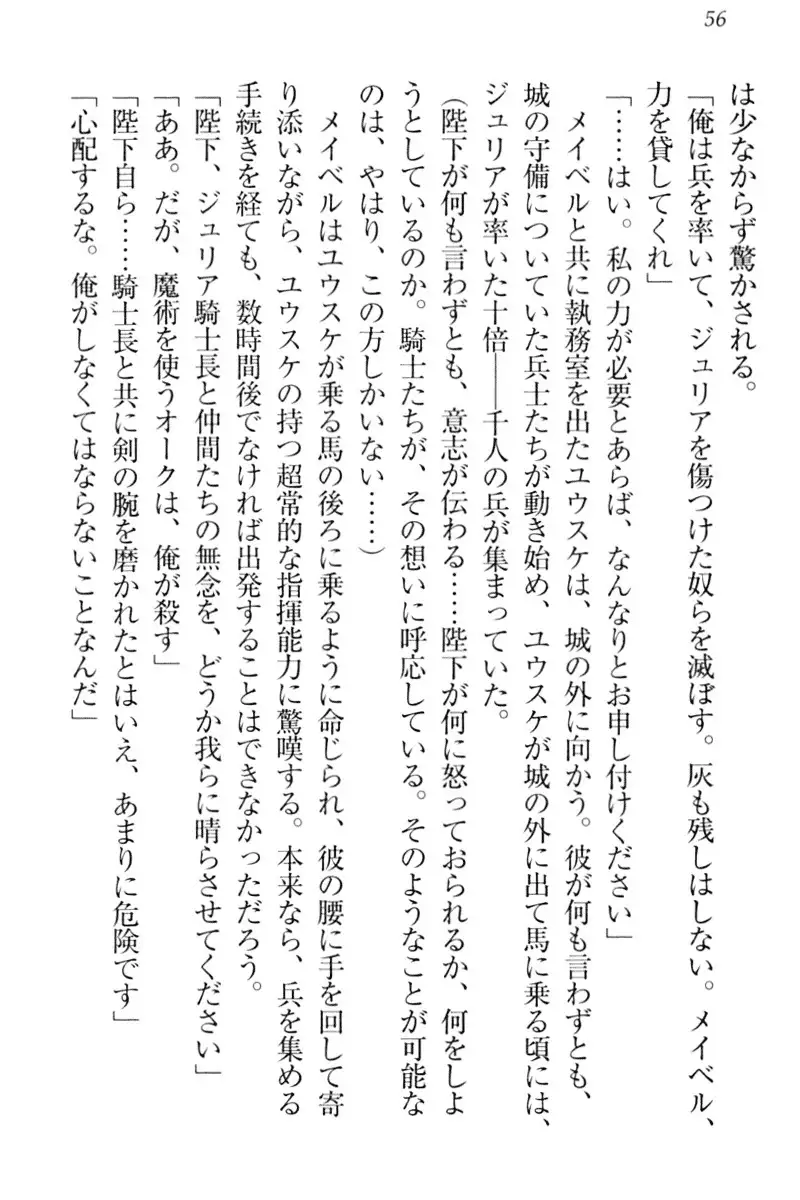 56
は少なからず驚かされる。
「俺は兵を率いて、ジュリアを傷つけた奴らを滅ぼす。灰も残しはしない。メイベル、
力を貸してくれ」
「……はい。私の力が必要とあらば、なんなりとお申し付けください」
メイベルと共に執務室を出たユウスケは、城の外に向かう。彼が何も言わずとも、
城の守備についていた兵士たちが動き始め、ユウスケが城の外に出て馬に乗る頃には、
ジュリアが率いた十倍――千人の兵が集まっていた。
（陛下が何も言わずとも、意志が伝わる……陛下が何に怒っておられるか、何をしよ
うとしているのか。騎士たちが、その想いに呼応している。そのようなことが可能な
のは、やはり、この方しかいない……）
メイベルはユウスケが乗る馬の後ろに乗るように命じられ、彼の腰に手を回して寄
り添いながら、ユウスケの持つ超常的な指揮能力に驚嘆する。本来なら、兵を集める
手続きを経ても、数時間後でなければ出発することはできなかっただろう。
「陛下、ジュリア騎士長と仲間たちの無念を、どうか我らに晴らさせてください」
「ああ。だが、魔術を使うオークは、俺が殺す」
「陛下自ら……騎士長と共に剣の腕を磨かれたとはいえ、あまりに危険です」
「心配するな。俺がしなくてはならないことなんだ」